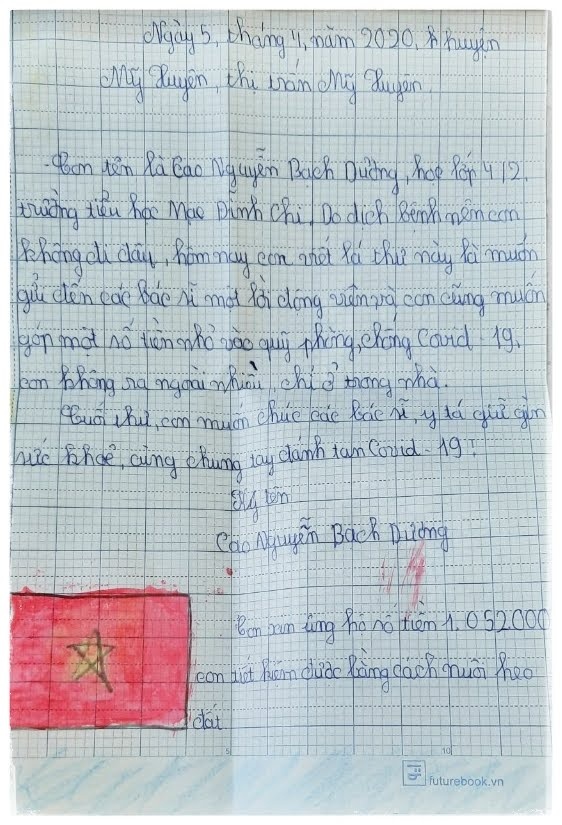 Ngày 5, tháng 4, năm 2020, huyện
Mỹ Xuyên, thị trấn Mỹ Xuyên.
- Con tên là Cao Nguyễn Bạch Dương, học lớp 4/2,
trường tiểu học Mạc Đĩnh Chi. Do dịch bệnh nên con
không đi đâu, hôm nay con viết lá thư này là muốn
gửi đến các bác sĩ một lời động viên và con cũng muốn
góp một số tiền nhỏ vào quỹ phòng, chống Covid - 19,
con không ra ngoài nhiều, chỉ ở trong nhà.
Cuối thư, con muốn chúc các bác sĩ, y tá giữ gìn
sức khoẻ, cùng chung tay đánh tan Covid - 19!
Ký tên
Cao Nguyễn Bạch Dương
Con xin ủng hộ số tiền 1.052000
con tiết kiệm được bằng cách nuôi heo
đất
5
10
futurebook.vn